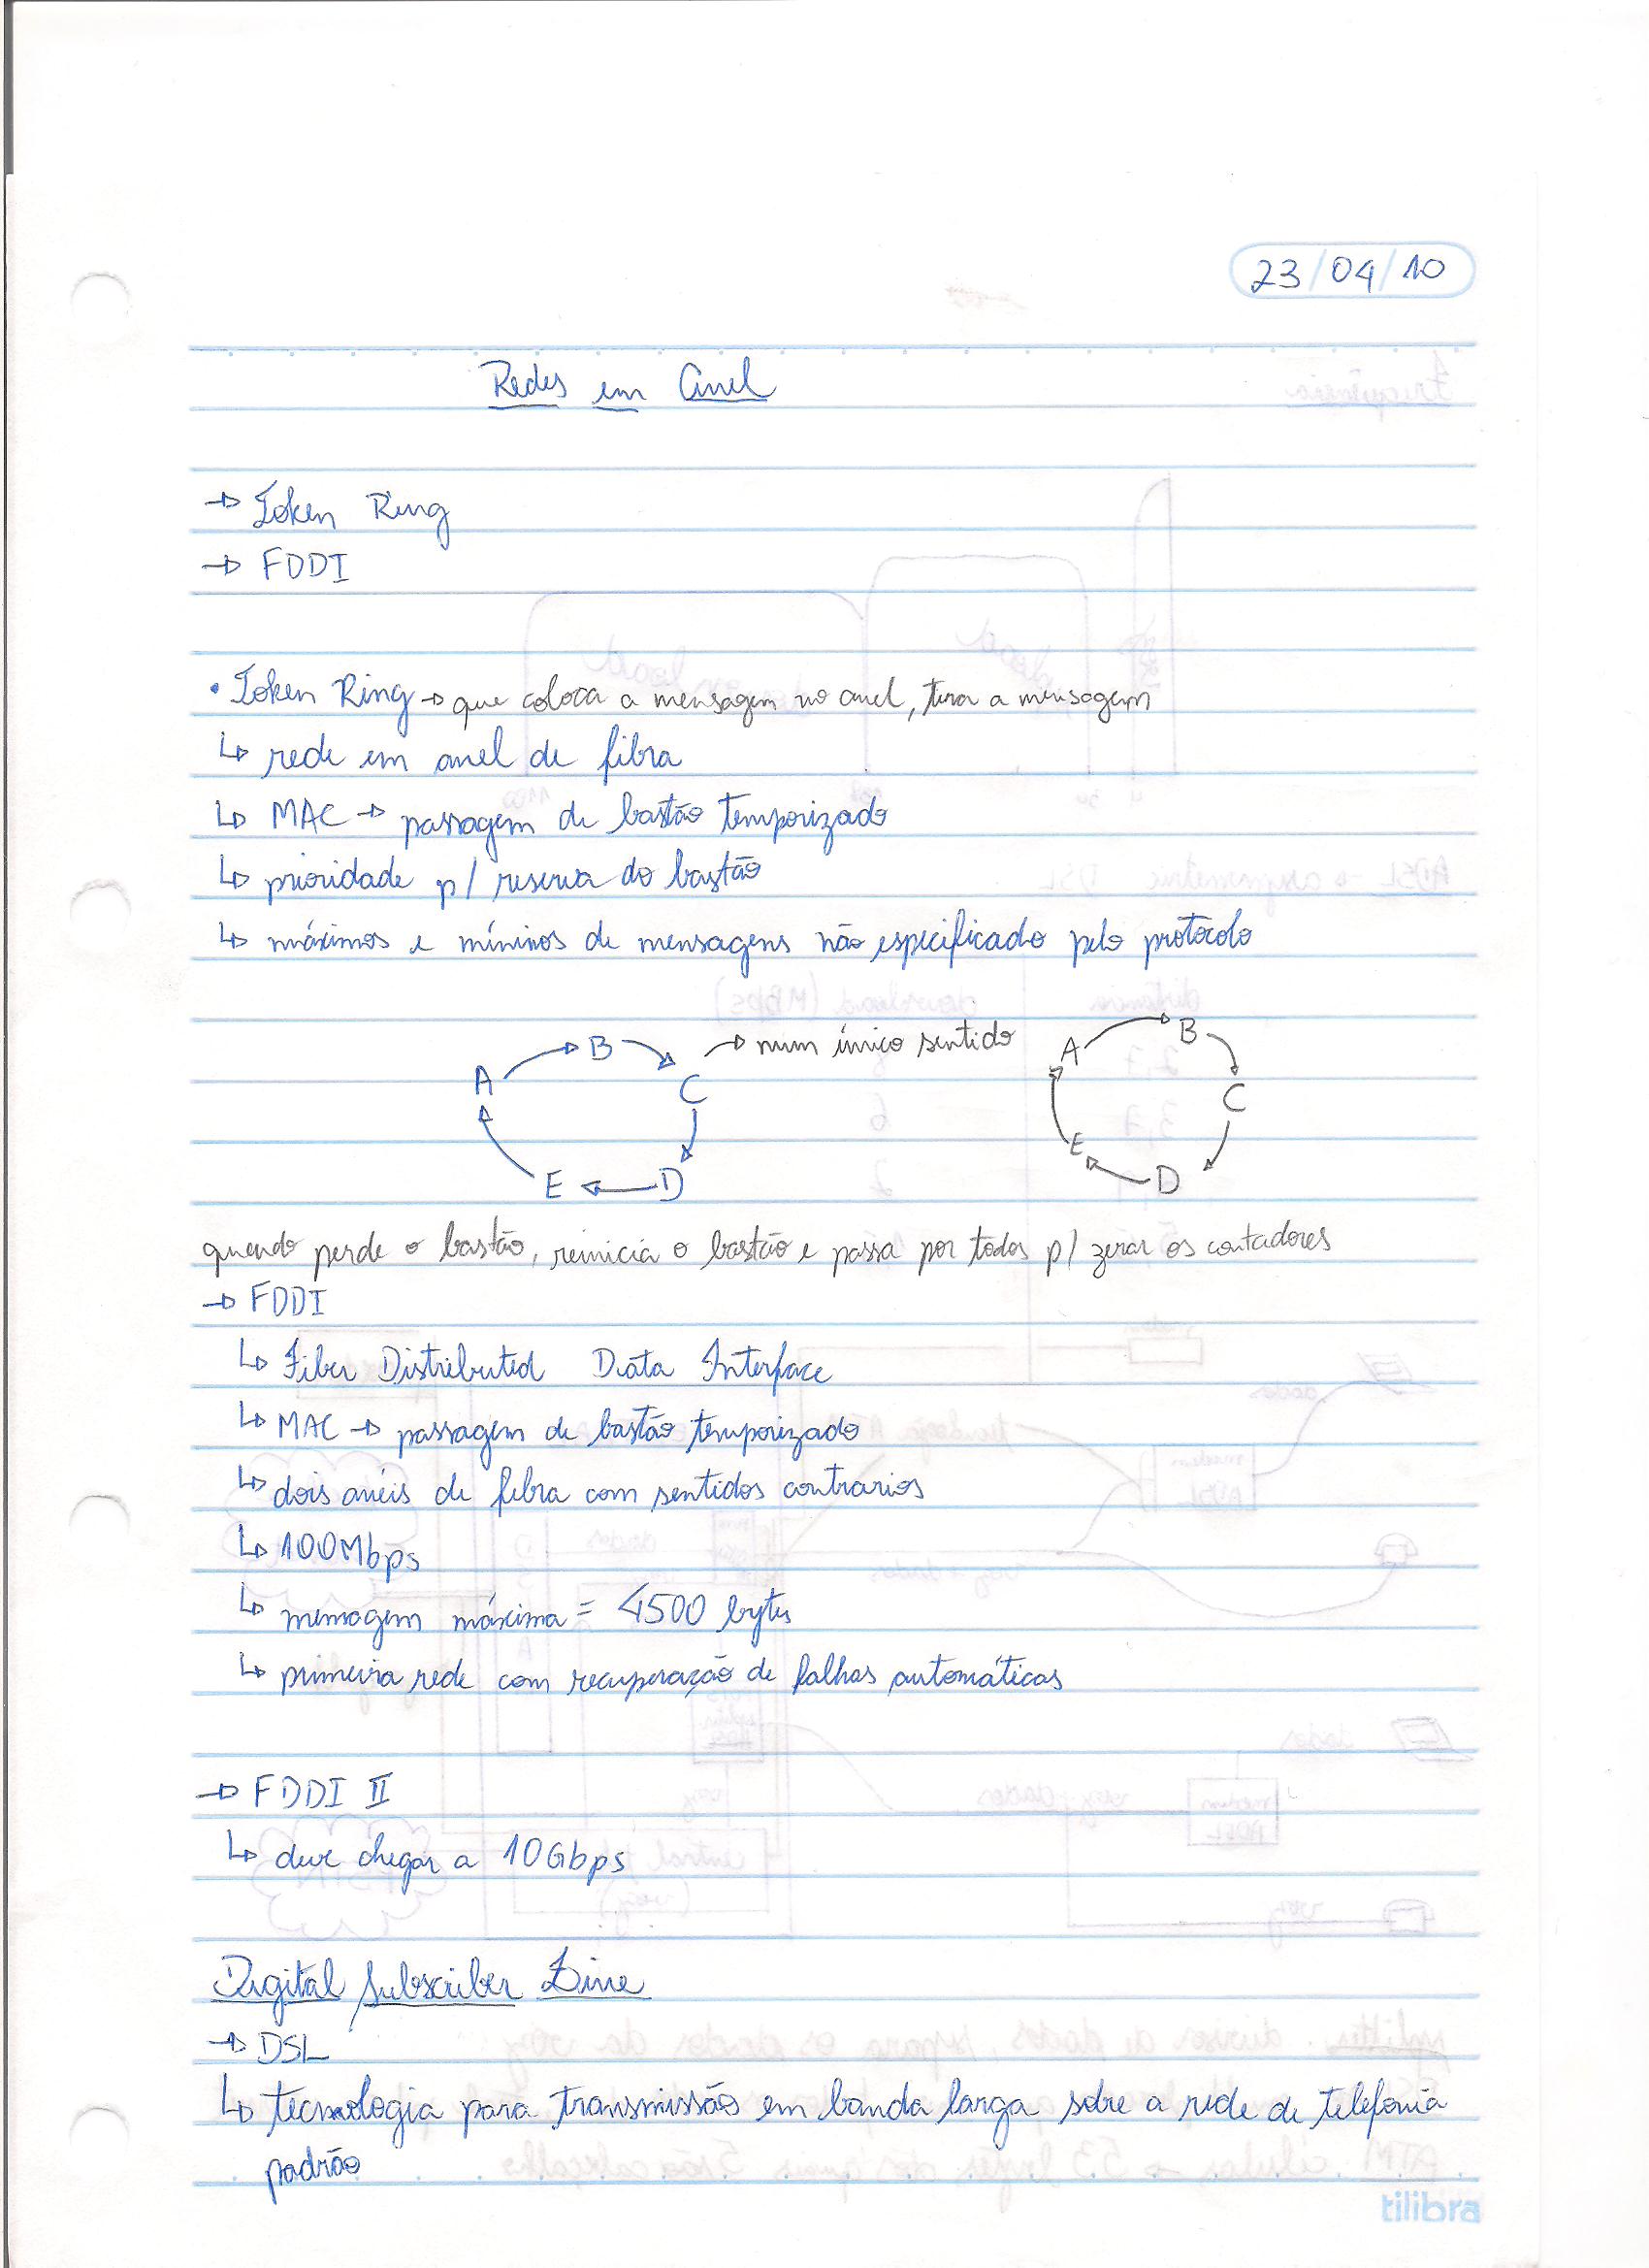 23/04/10
Redes em Anel
→ Token Ring
→ FDDI
• Token Ring → que coloca a mensagem no anel, tira a mensagem
↳ rede em anel de fibra
↳ MAC → passagem de bastão temporizado
↳ prioridade p/ reserva do bastão
↳ máximos e mínimos de mensagens não especificado pelo protocolo
A → B → C → D → E → num único sentido
A → B → C → D → E
quando perde o bastão, reinicia o bastão e passa por todos p/ zerar os contadores
→ FDDI
↳ Fiber Distributed Data Interface
↳ MAC → passagem de bastão temporizado
↳ dois anéis de fibra com sentidos contrarios
↳ 100Mbps
↳ mensagem máxima = 4500 bytes
↳ primeira rede com recuperação de falhas automáticas
→ FDDI II
↳ deve chegar a 10Gbps
Digital Subscriber Line
→ DSL
↳ tecnologia para transmissão em banda larga sobre a rede de telefonia
padrão
tilibra